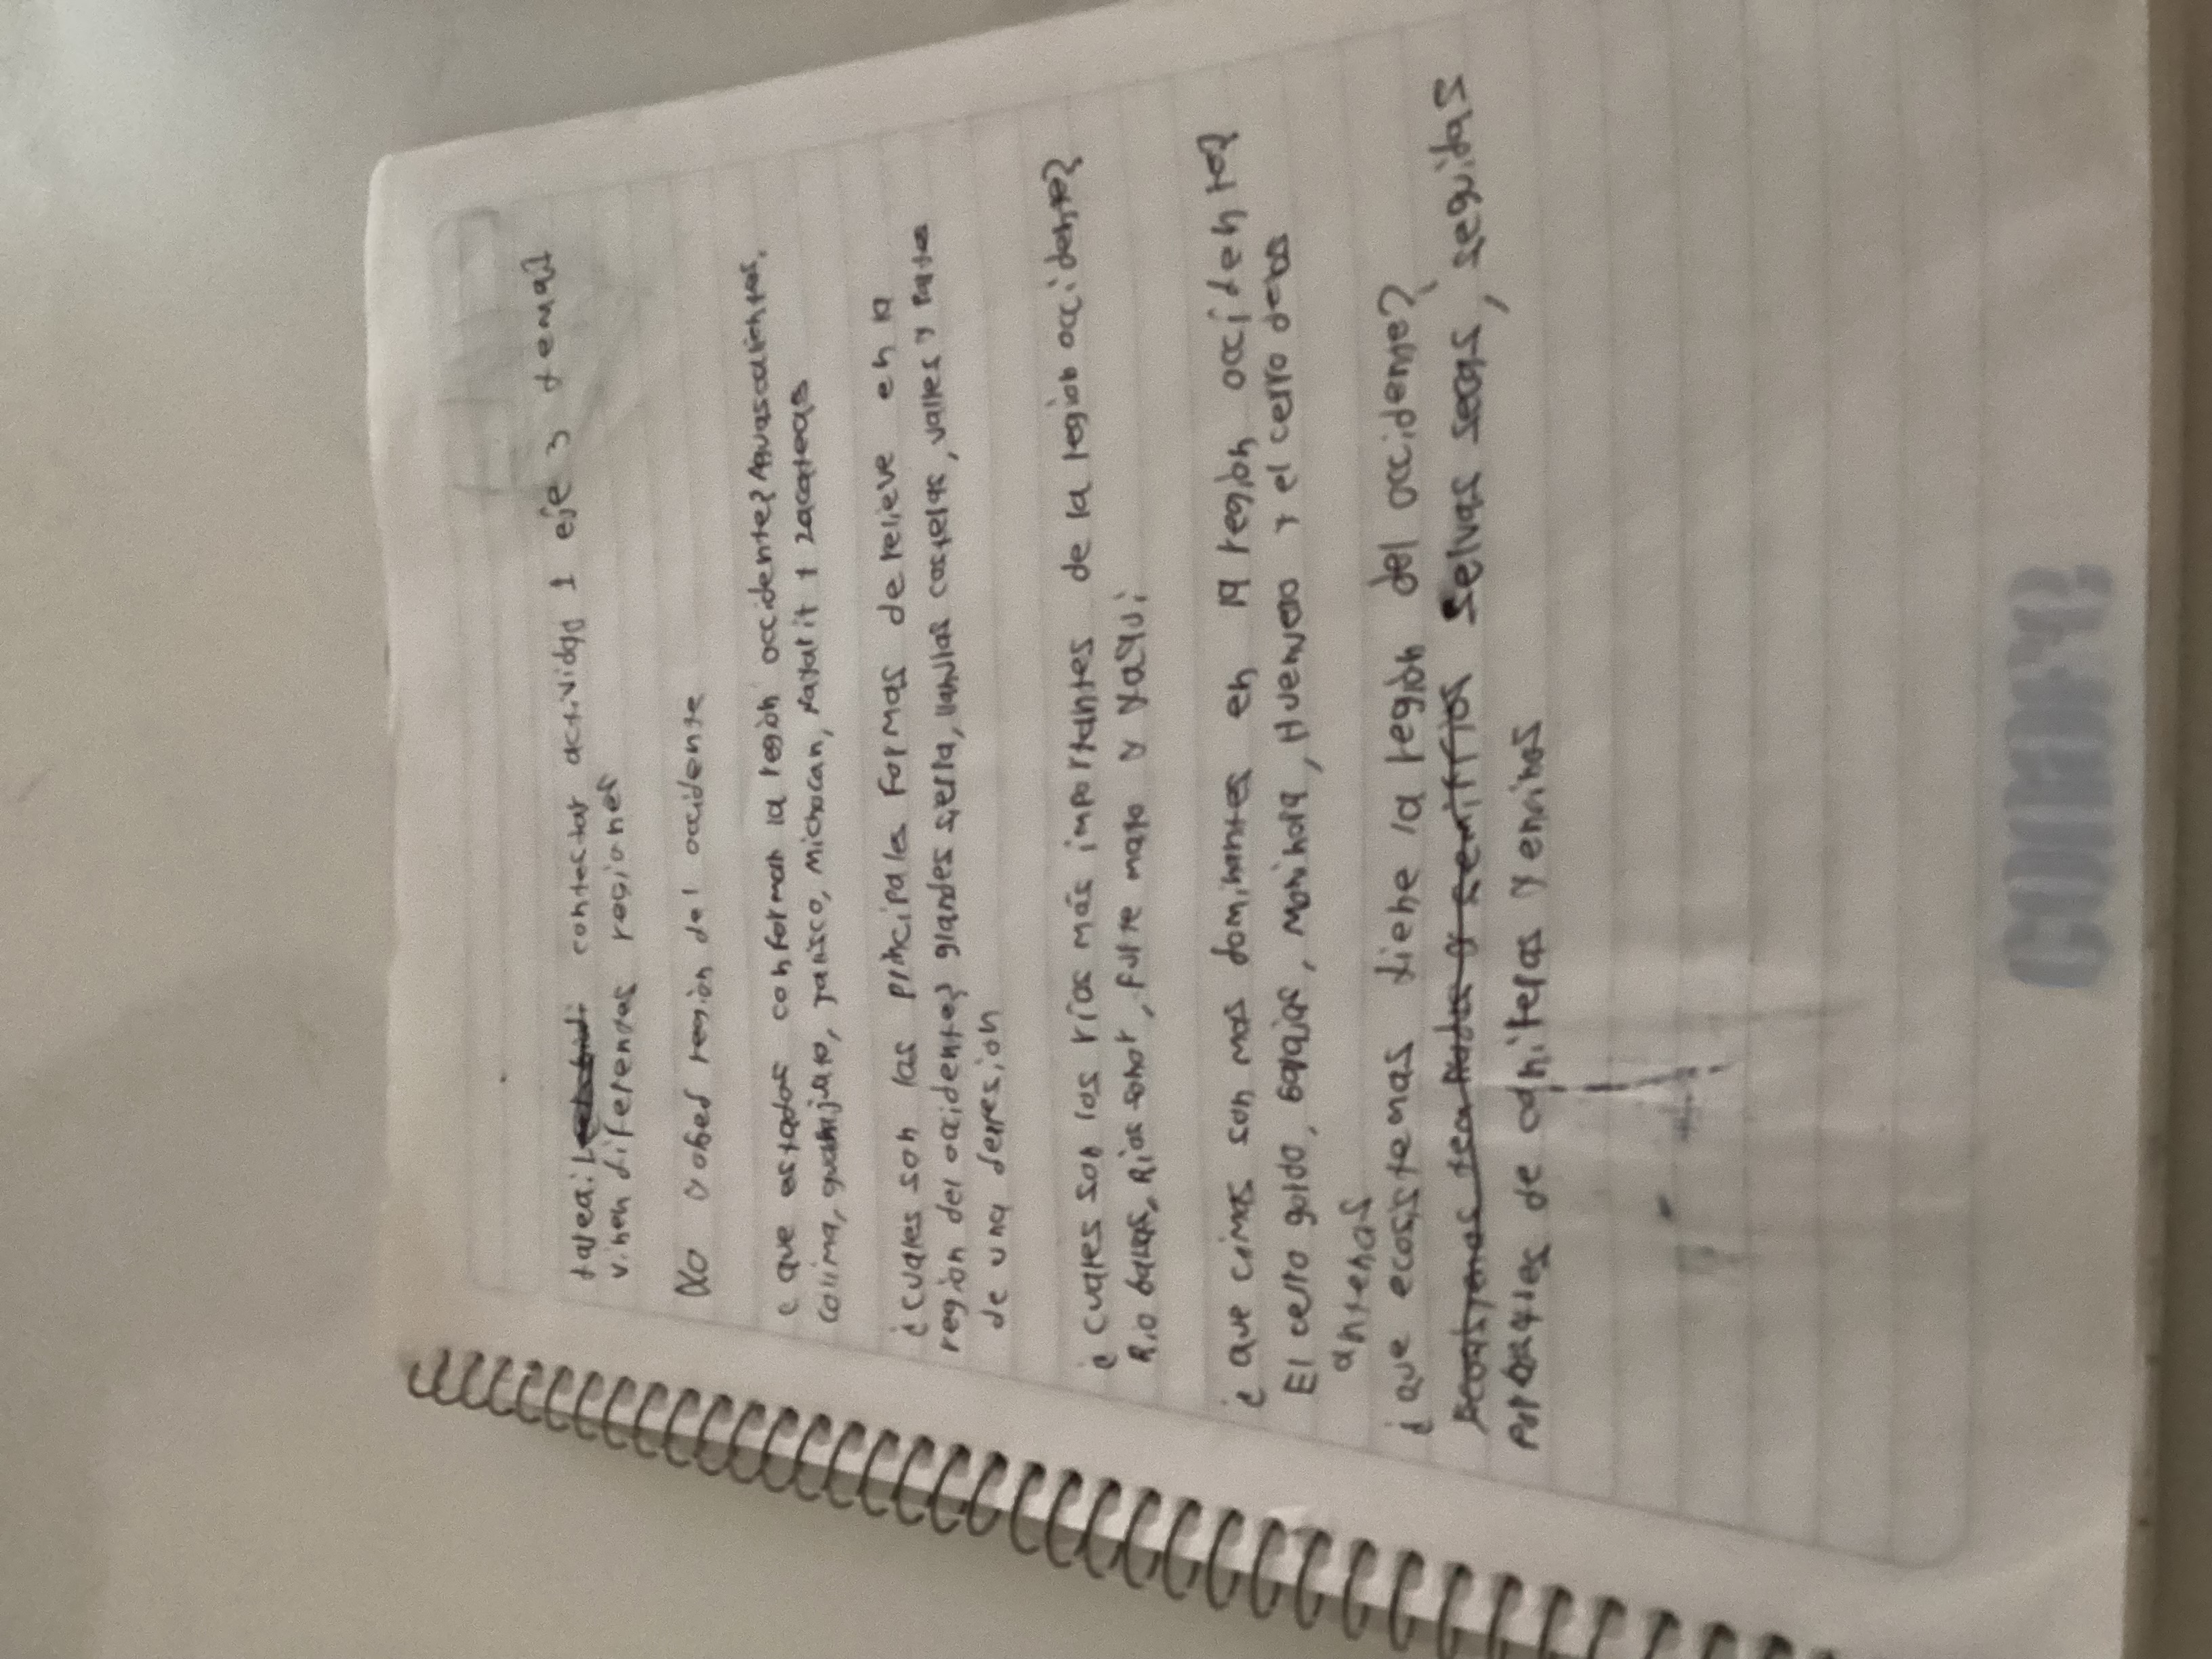 tarea: contestar actividad 1 eje 3 tema 1
vinen diferendas regiones
Yo ober región del occidente
¿ que estados conforman la región occidente? Aguascalientes,
colima, guanjuato, jalisco, Michoacan, Nayarit y zacatecas
¿ cuales son las principales formas de relieve en la
region del occidente? grandes sierra, llanuras costeras, valles y parte
de una depresion
¿ cuales son los ríos más importantes de la region occidente?
Rio balsas, Rios sonor, fuerte mayo y Yaqui
¿ que cimas son mas dominantes en la región occidente?
El cerro gordo, , , y el cerro de las
antenas
¿ que ecosistemas tiene la región del occidente?
y semifrios Selvas secas, seguidas
de coniferas y encinos